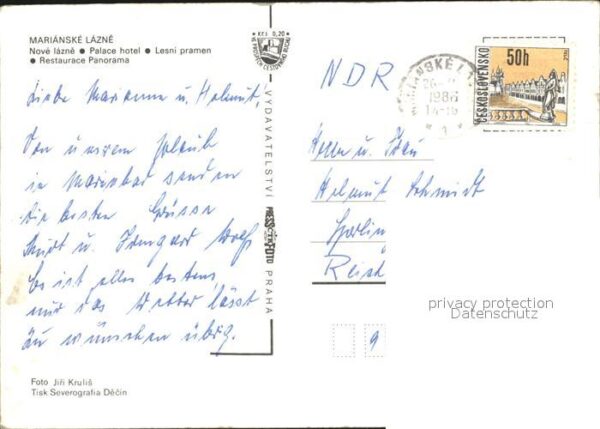 MARIÁNSKÉ LÁZNĚ
Nové lázně ● Palace hotel ● Lesní pramen
● Restaurace Panorama
Kčs 0,20
Liebe Marianna u. Helmut,
Von unserem Urlaub
in Marienbad senden
die besten Grüsse
u. Irmgard Wolf
Es ist alles bestens,
nur das Wetter lässt
zu wünschen übrig.
Foto Jiří Kruliš
Tisk Severografia Děčín
VYDAVATELSTVÍ
PRESSFOTO
PRAHA
NDR
1986
50h
ČESKOSLOVENSKO
Herrn u. Frau
Helmut Schmidt
Berlin
9
privacy protection
Datenschutz